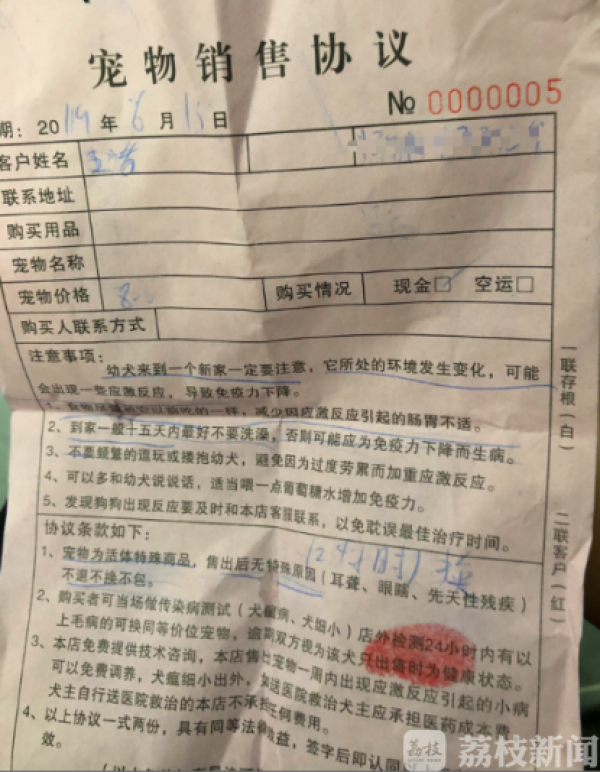 宠物销售协议
№ 0000005
期：2019年6月15日
客户姓名
联系地址
购买用品
宠物名称
宠物价格 购买情况 现金☑ 空运□
购买人联系方式
注意事项：
幼犬来到一个新家一定要注意，它所处的环境发生变化，可能
会出现一些应激反应，导致免疫力下降。
一样，减少因应激反应引起的肠胃不适。
2、到家一般十五天内最好不要洗澡，否则可能应为免疫力下降而生病。
3、不要频繁的逗玩或搂抱幼犬，避免因为过度劳累而加重应激反应。
4、可以多和幼犬说说话，适当喂一点葡萄糖水增加免疫力。
5、发现狗狗出现反应要及时和本店客服联系，以免耽误最佳治疗时间。
协议条款如下：
1、宠物为活体特殊商品，售出后无特殊原因（耳聋、眼瞎、先天性残疾）
不退不换不包。
2、购买者可当场做传染病测试（犬瘟病、犬细小）店外检测24小时内有以
上毛病的可换同等价位宠物，逾期双方视为该犬只出售时为健康状态。
3、本店免费提供技术咨询，本店售出宠物一周内出现应激反应引起的小病
可以免费调养，犬瘟细小出外，送医院救治犬主应承担医药成本费
犬主自行送医院救治的本店不承担任何费用。
4、以上协议一式两份，具有同等法律效益，签字后即认同
效。
一联存根（白）
二联客户（红）
荔枝
荔枝新闻